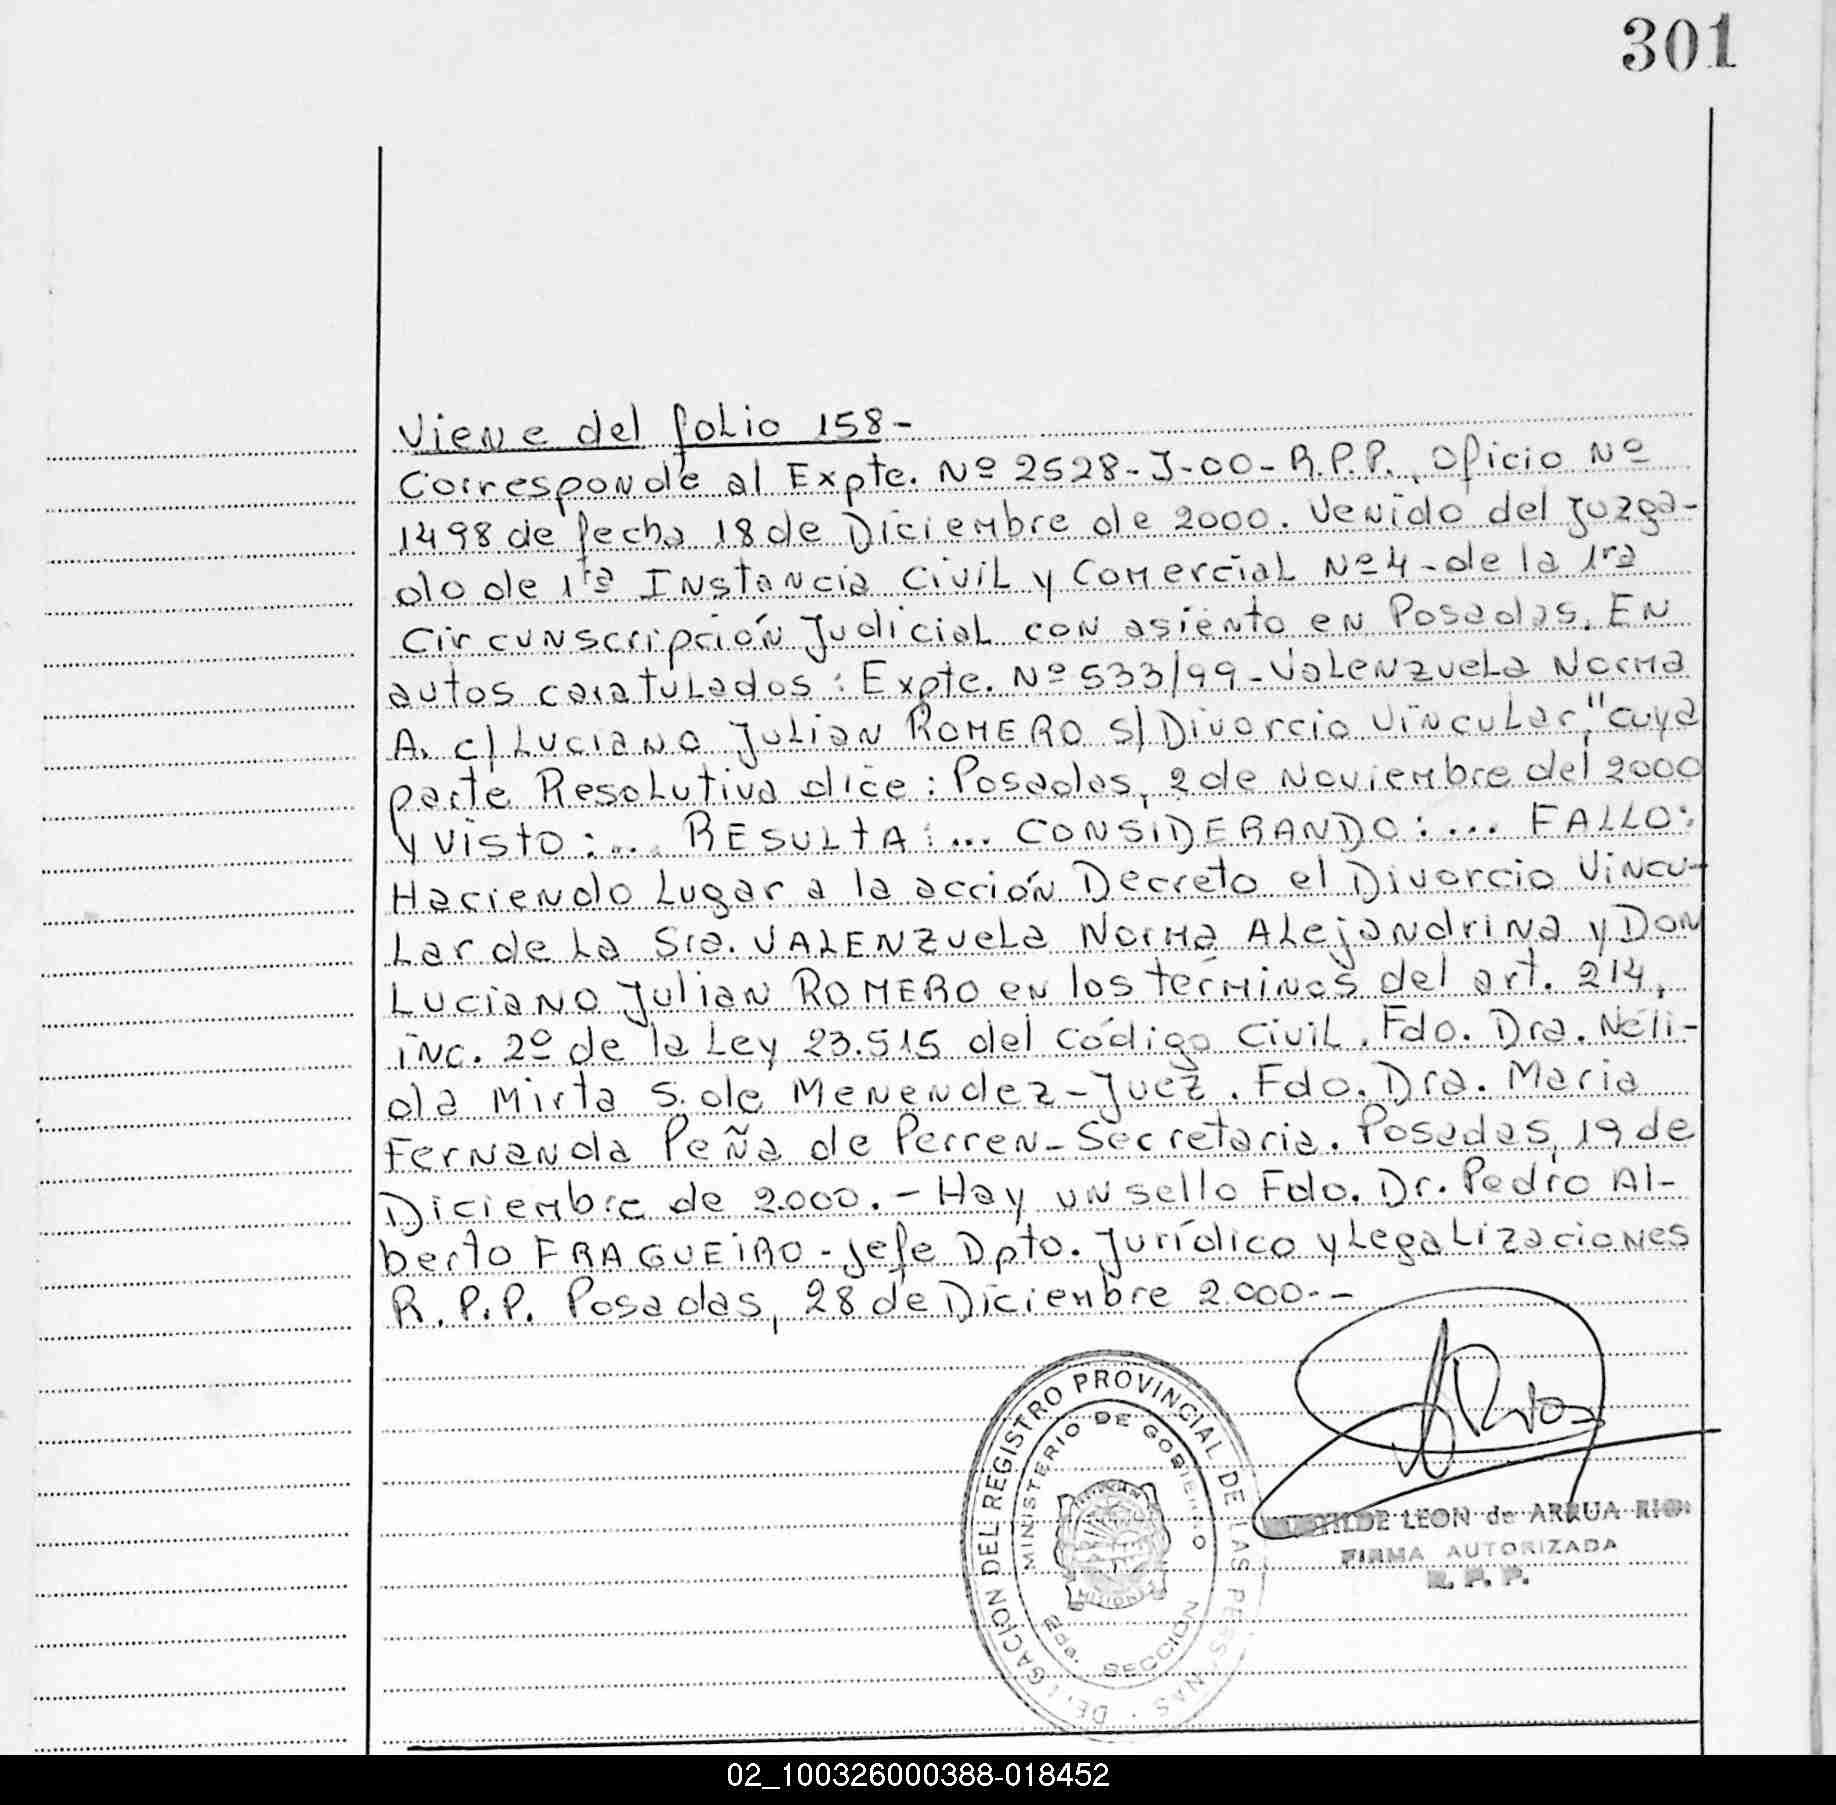 301
Viene del folio 158-
Corresponde al Expte. Nº 2528-J-00-R.P.P., Oficio Nº
1498 de fecha 18 de Diciembre de 2000. Venido del Juzga-
do de 1ra Instancia Civil y Comercial Nº 4-de la 1ra
Circunscripción Judicial con asiento en Posadas. EN
autos caratulados: Expte. Nº 533/99-Valenzuela Norma
A. c/ Luciano Julian ROMERO s/ Divorcio Vincular," cuya
parte Resolutiva dice: Posadas, 2 de Noviembre del 2000
y visto:... RESULTA:... CONSIDERANDO:... FALLO:
Haciendo Lugar a la acción Decreto el Divorcio Vincu-
Lar de La Sra. VALENZUELA Norma Alejandrina y Don
Luciano Julian ROMERO en los términos del art. 214,
inc. 2º de la Ley 23.515 del código Civil. Fdo. Dra. Néli-
da Mirta S. de Menendez-Juez. Fdo. Dra. Maria
Fernanda Peña de Perren-Secretaria. Posadas, 19 de
Diciembre de 2.000.- Hay un sello Fdo. Dr. Pedro Al-
berto FRAGUEIRO-Jefe Dpto. Jurídico y Legalizaciones
R.P.P. Posadas, 28 de Diciembre 2.000.-
DELEGACION DEL REGISTRO PROVINCIAL DE LAS PERSONAS
MINISTERIO DE GOBIERNO
MISIONES
2da. SECCION
LEON de ARRUA RIOS
FIRMA AUTORIZADA
R. P. P.
02_100326000388-018452